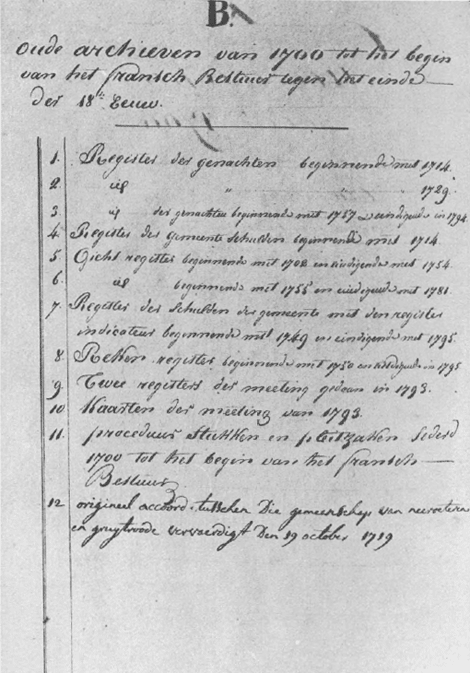 B.
oude archieven van 1700 tot het begin
van het fransch Bestuur tegen het einde
der 18e Eeuw.
1. Register der genachten beginnende met 1714.
2 id " " 1729.
3 id der genachten beginnende met 1757 en eindigende in 1794
4 Register der gemeente schulden beginnende met 1714.
5 Gicht register beginnende met 1702 en eindigende met 1754.
6. id beginnende met 1755 en eindigende met 1781.
7. Register der schulden der gemeente met den register
indicateur beginnende met 1749 en eindigende met 1795.
8. Reken register beginnende met 1750 en eindigende in 1795
9 Twee registers der meeting gedaan in 1793.
10 Kaarten der meeting van 1793.
11. proceduur stukken en pleitzaken sederd
1700 tot het begin van het fransch
Bestuur
12 origineel accoord tusschen Die gemeenschap van neeroeteren
en gruytrode vervoerdigt Den 19 october 1719